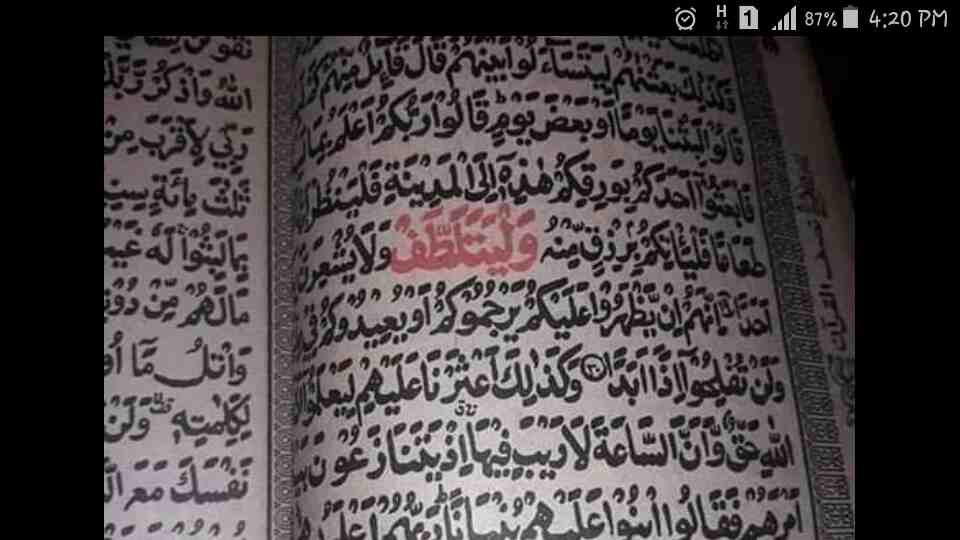 H 1 87% 4:20 PM
وَكَذٰلِكَ بَعَثْنٰهُمْ لِيَتَسَآءَلُوْا بَيْنَهُمْ قَالَ قَآئِلٌ مِّنْهُمْ كَمْ
قَالُوْا لَبِثْنَا يَوْمًا اَوْ بَعْضَ يَوْمٍ ؕ قَالُوْا رَبُّكُمْ اَعْلَمُ بِمَا
فَابْعَثُوْۤا اَحَدَكُمْ بِوَرِقِكُمْ هٰذِهٖۤ اِلَى الْمَدِيْنَةِ فَلْيَنْظُرْ
طَعَامًا فَلْيَاْتِكُمْ بِرِزْقٍ مِّنْهُ وَلْيَتَلَطَّفْ وَلَا يُشْعِرَنَّ
اَحَدًا اِنَّهُمْ اِنْ يَّظْهَرُوْا عَلَيْكُمْ يَرْجُمُوْكُمْ اَوْ يُعِيْدُوْكُمْ فِيْ
وَلَنْ تُفْلِحُوْۤا اِذًا اَبَدًا ۝٢٠ وَكَذٰلِكَ اَعْثَرْنَا عَلَيْهِمْ لِيَعْلَمُوْۤا
اللّٰهِ حَقٌّ وَّاَنَّ السَّاعَةَ لَا رَيْبَ فِيْهَا اِذْ يَتَنَازَعُوْنَ
اَمْرَهُمْ فَقَالُوا ابْنُوْا عَلَيْهِمْ بُنْيَانًا ؕ رَبُّهُمْ اَعْلَمُ
اللّٰهُ وَاذْكُرْ رَّبَّكَ
رَبِّيْ لِاَقْرَبَ مِنْ
ثَلٰثَ مِائَةٍ سِنِيْنَ
بِمَا لَبِثُوْا لَهٗ غَيْبُ
مَا لَهُمْ مِّنْ دُوْنِهٖ
وَاتْلُ مَاۤ اُوْ
لِكَلِمٰتِهٖ وَلَنْ
نَفْسَكَ مَعَ